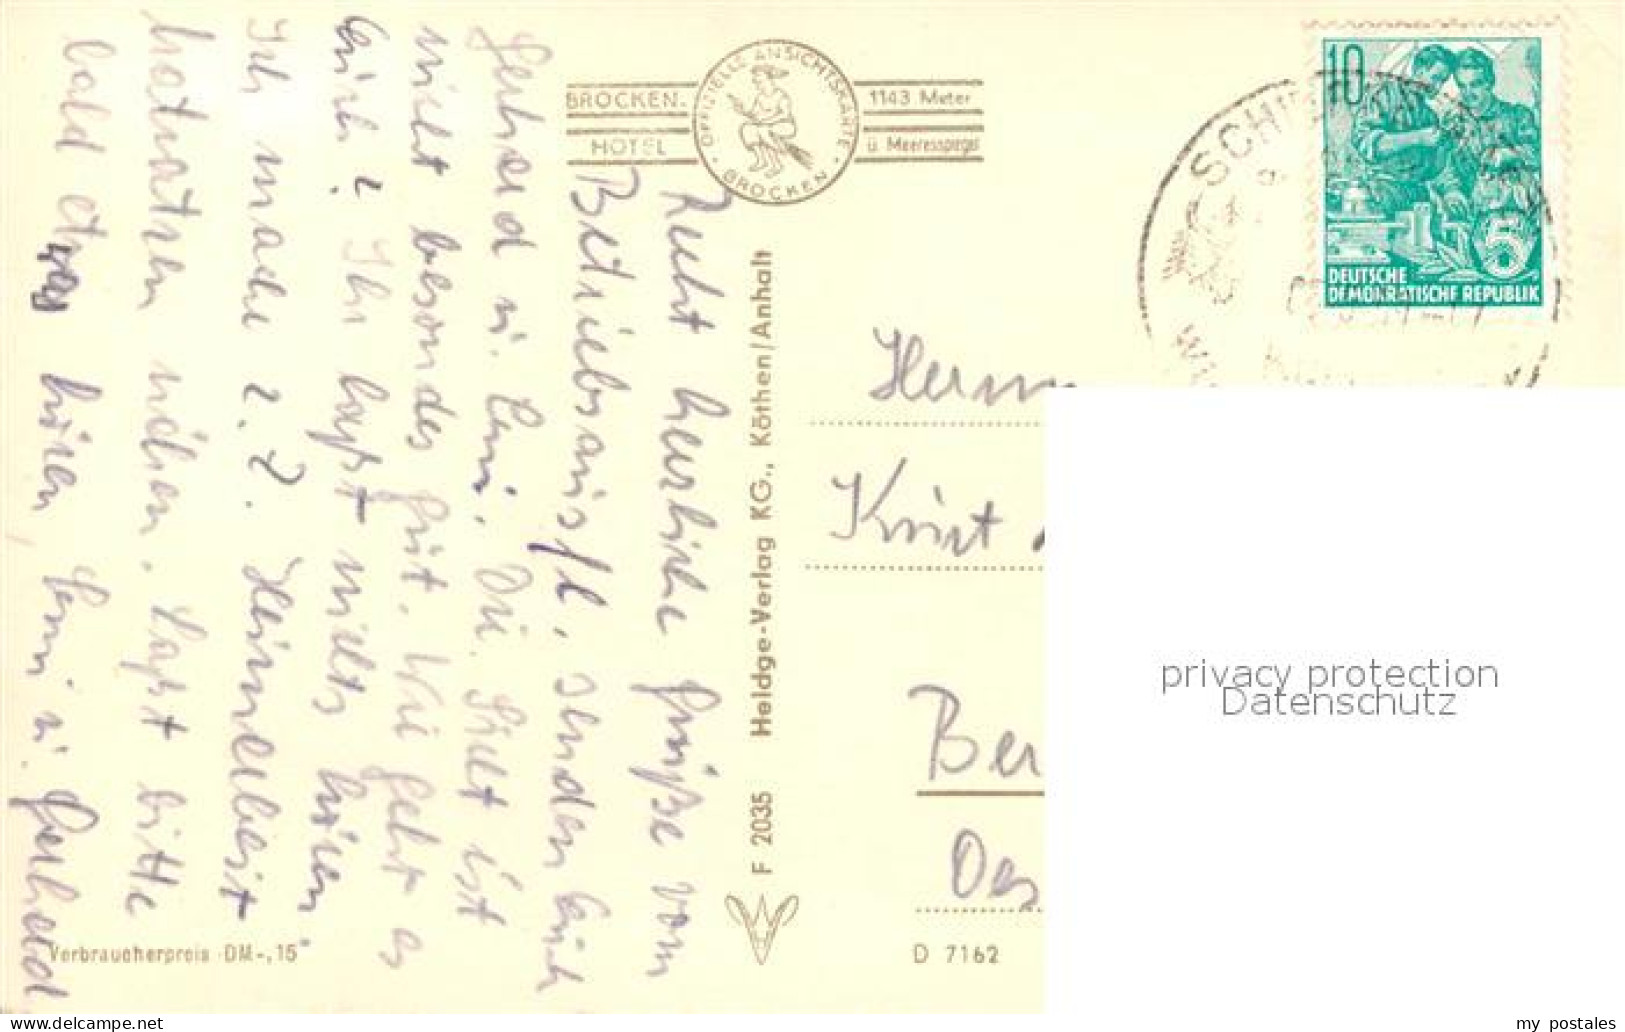 BROCKEN-
HOTEL
OFFIZIELLE ANSICHTSKARTE
BROCKEN
1143 Meter
ü. Meeresspiegel
10
5
DEUTSCHE
DEMOKRATISCHE REPUBLIK
SCHI
Recht herzliche Grüße vom
Betriebsausfl. senden Euch
Gerhard u. Leni. Die Sicht ist
nicht besonders gut. Wie geht es
Euch? Ihr laßt nichts hören.
Ich mache z. Z. Heimarbeit
bitte
bald etwas hören, Leni u. Gerhard
Verbraucherpreis DM -,15
F 2035 Heldge-Verlag KG., Köthen/Anhalt
Herrn
Kurt
Ber
D 7162
privacy protection
Datenschutz
www.delcampe.net
my_postales